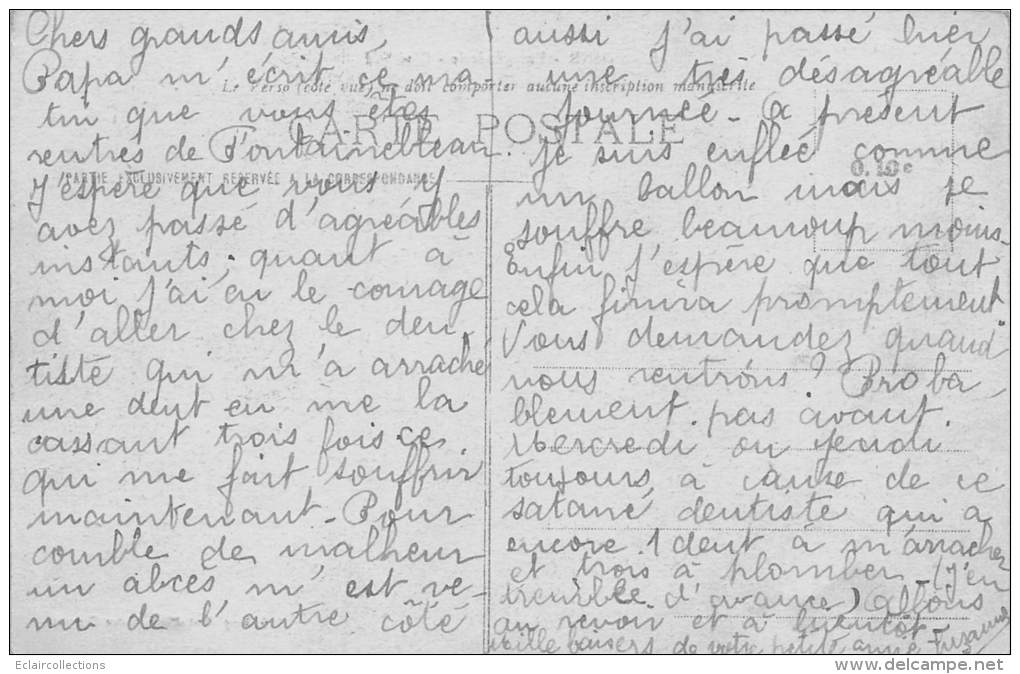 Chers grands amis,
Papa m'écrit ce ma
tin que vous êtes
rentrés de Fontainebleau.
J'espère que vous y
avez passé d'agréables
instants; quant à
moi j'ai eu le courage
d'aller chez le den
tiste qui m'a arraché
une dent en me la
cassant trois fois ce
qui me fait souffrir
maintenant. Pour
comble de malheur
un abcès m'est ve-
nu de l'autre côté
aussi j'ai passé hier
une très désagréable
journée. A présent
je suis enflée comme
un ballon mais je
souffre beaucoup moins.
Enfin j'espère que tout
cela finira promptement
Vous demandez quand
nous rentrons? Proba
blement pas avant
Mercredi ou jeudi
toujours à cause de ce
satané dentiste qui a
encore 1 dent à m'arracher
et trois à plomber (j'en
tremble d'avance) allons
au revoir et à bientôt
Mille baisers de votre petite amie Suzanne
Le Verso (côté vue) ne doit comporter aucune inscription manuscrite
CARTE POSTALE
PARTIE EXCLUSIVEMENT RÉSERVÉE A LA CORRESPONDANCE
0.10c
Eclaircollections
www.delcampe.net